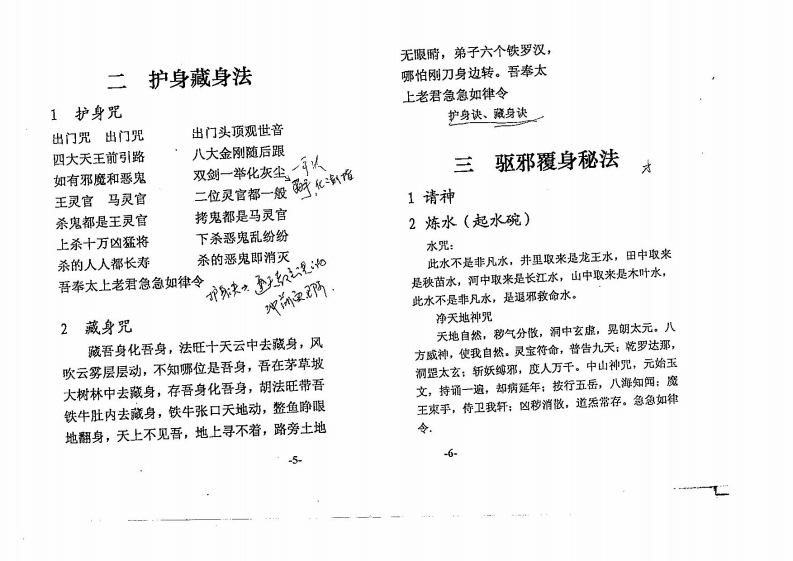 二 护身藏身法
1 护身咒
出门咒 出门咒 出门头顶观世音
四大天王前引路 八大金刚随后跟
如有邪魔和恶鬼 双剑一举化灰尘
王灵官 马灵官 二位灵官都一般
杀鬼都是王灵官 拷鬼都是马灵官
上杀十万凶猛将 下杀恶鬼乱纷纷
杀的人人都长寿 杀的恶鬼即消灭
吾奉太上老君急急如律令
2 藏身咒
藏吾身化吾身，法旺十天云中去藏身，风
吹云雾层层动，不知哪位是吾身，吾在茅草坡
大树林中去藏身，存吾身化吾身，胡法旺带吾
铁牛肚内去藏身，铁牛张口天地动，鳌鱼睁眼
地翻身，天上不见吾，地上寻不着，路旁土地
-5-
无眼睛，弟子六个铁罗汉，
哪怕刚刀身边转。吾奉太
上老君急急如律令
护身诀、藏身诀
三 驱邪覆身秘法
1 请神
2 炼水（起水碗）
水咒：
此水不是非凡水，井里取来是龙王水，田中取来
是秧苗水，河中取来是长江水，山中取来是木叶水，
此水不是非凡水，是退邪救命水。
净天地神咒
天地自然，秽气分散，洞中玄虚，晃朗太元。八
方威神，使我自然。灵宝符命，普告九天；乾罗达那，
洞罡太玄；斩妖缚邪，度人万千。中山神咒，元始玉
文，持诵一遍，却病延年；按行五岳，八海知闻；魔
王束手，侍卫我轩；凶秽消散，道炁常存。急急如律
令.
-6-